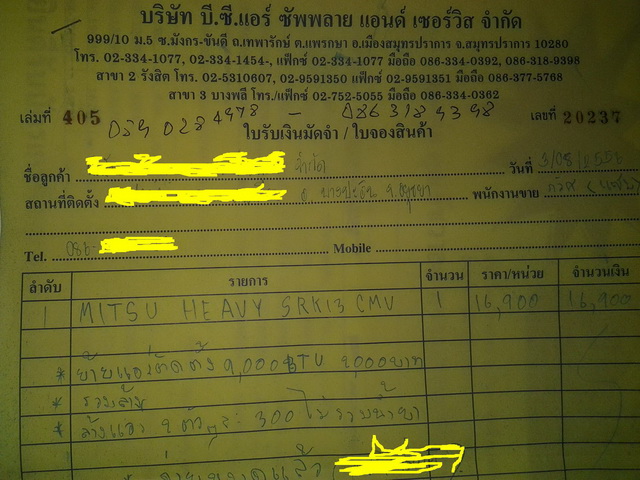 บริษัท บี.ซี.แอร์ ซัพพลาย แอนด์ เซอร์วิส จำกัด
999/10 ม.5 ซ.มังกร-ขันดี ถ.เทพารักษ์ ต.แพรกษา อ.เมืองสมุทรปราการ จ.สมุทรปราการ 10280
โทร. 02-334-1077, 02-334-1454-, แฟ็กซ์ 02-334-1077 มือถือ 086-334-0392, 086-318-9398
สาขา 2 รังสิต โทร. 02-5310607, 02-9591350 แฟ็กซ์ 02-9591351 มือถือ 086-377-5768
สาขา 3 บางพลี โทร./แฟ็กซ์ 02-752-5055 มือถือ 086-334-0362
เล่มที่ 405 เลขที่ 20237
ใบรับเงินมัดจำ / ใบจองสินค้า
ชื่อลูกค้า จำกัด วันที่
สถานที่ติดตั้ง พนักงานขาย
Tel. 086- Mobile
ลำดับ รายการ จำนวน ราคา/หน่วย จำนวนเงิน
1 MITSU HEAVY SRK13 CMV 1 16,900 16,900
* ย้ายแอร์ติดตั้ง 9,000 BTU 2000 บาท
* รวมล้าง
* ล้างแอร์ 2 ตัวๆละ 300 ไม่รวมน้ำยา